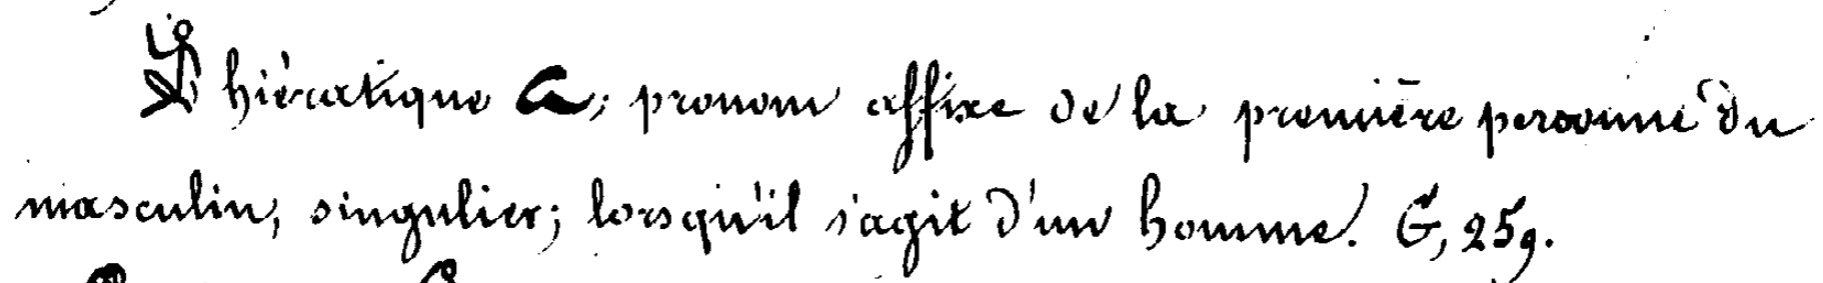 hiératique pronom affixe de la première personne du
masculin, singulier; lorsqu'il s'agit d'un homme. G, 259.